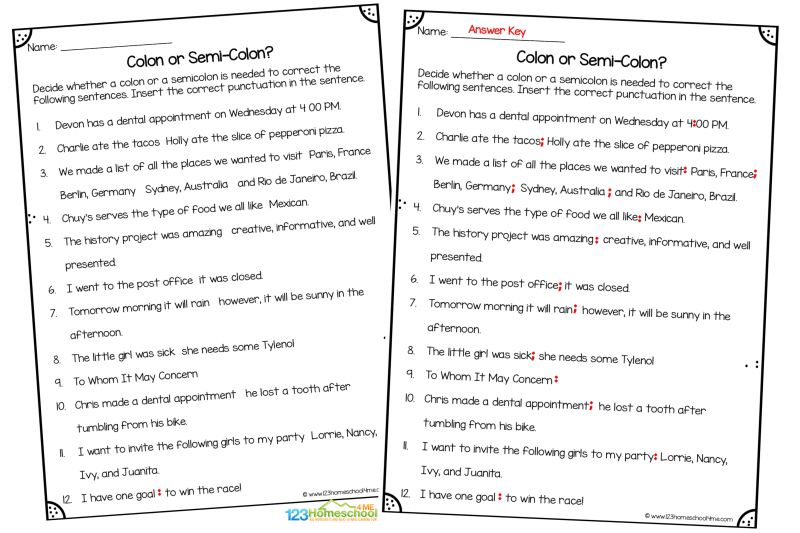 Name:
Colon or Semi-Colon?
Decide whether a colon or a semicolon is needed to correct the
following sentences. Insert the correct punctuation in the sentence.
1. Devon has a dental appointment on Wednesday at 4 00 PM.
2. Charlie ate the tacos Holly ate the slice of pepperoni pizza.
3. We made a list of all the places we wanted to visit Paris, France
Berlin, Germany Sydney, Australia and Rio de Janeiro, Brazil.
4. Chuy's serves the type of food we all like Mexican.
5. The history project was amazing creative, informative, and well
presented.
6. I went to the post office it was closed.
7. Tomorrow morning it will rain however, it will be sunny in the
afternoon.
8. The little girl was sick she needs some Tylenol
9. To Whom It May Concern
10. Chris made a dental appointment he lost a tooth after
tumbling from his bike.
11. I want to invite the following girls to my party Lorrie, Nancy,
Ivy, and Juanita.
12. I have one goal : to win the race!
© www.123homeschool4me.c
123 Homeschool 4 ME
Name: Answer Key
Colon or Semi-Colon?
Decide whether a colon or a semicolon is needed to correct the
following sentences. Insert the correct punctuation in the sentence.
1. Devon has a dental appointment on Wednesday at 4:00 PM.
2. Charlie ate the tacos; Holly ate the slice of pepperoni pizza.
3. We made a list of all the places we wanted to visit: Paris, France;
Berlin, Germany; Sydney, Australia ; and Rio de Janeiro, Brazil.
4. Chuy's serves the type of food we all like: Mexican.
5. The history project was amazing: creative, informative, and well
presented.
6. I went to the post office; it was closed.
7. Tomorrow morning it will rain; however, it will be sunny in the
afternoon.
8. The little girl was sick; she needs some Tylenol
9. To Whom It May Concern :
10. Chris made a dental appointment; he lost a tooth after
tumbling from his bike.
11. I want to invite the following girls to my party: Lorrie, Nancy,
Ivy, and Juanita.
12. I have one goal : to win the race!
© www.123homeschool4me.com